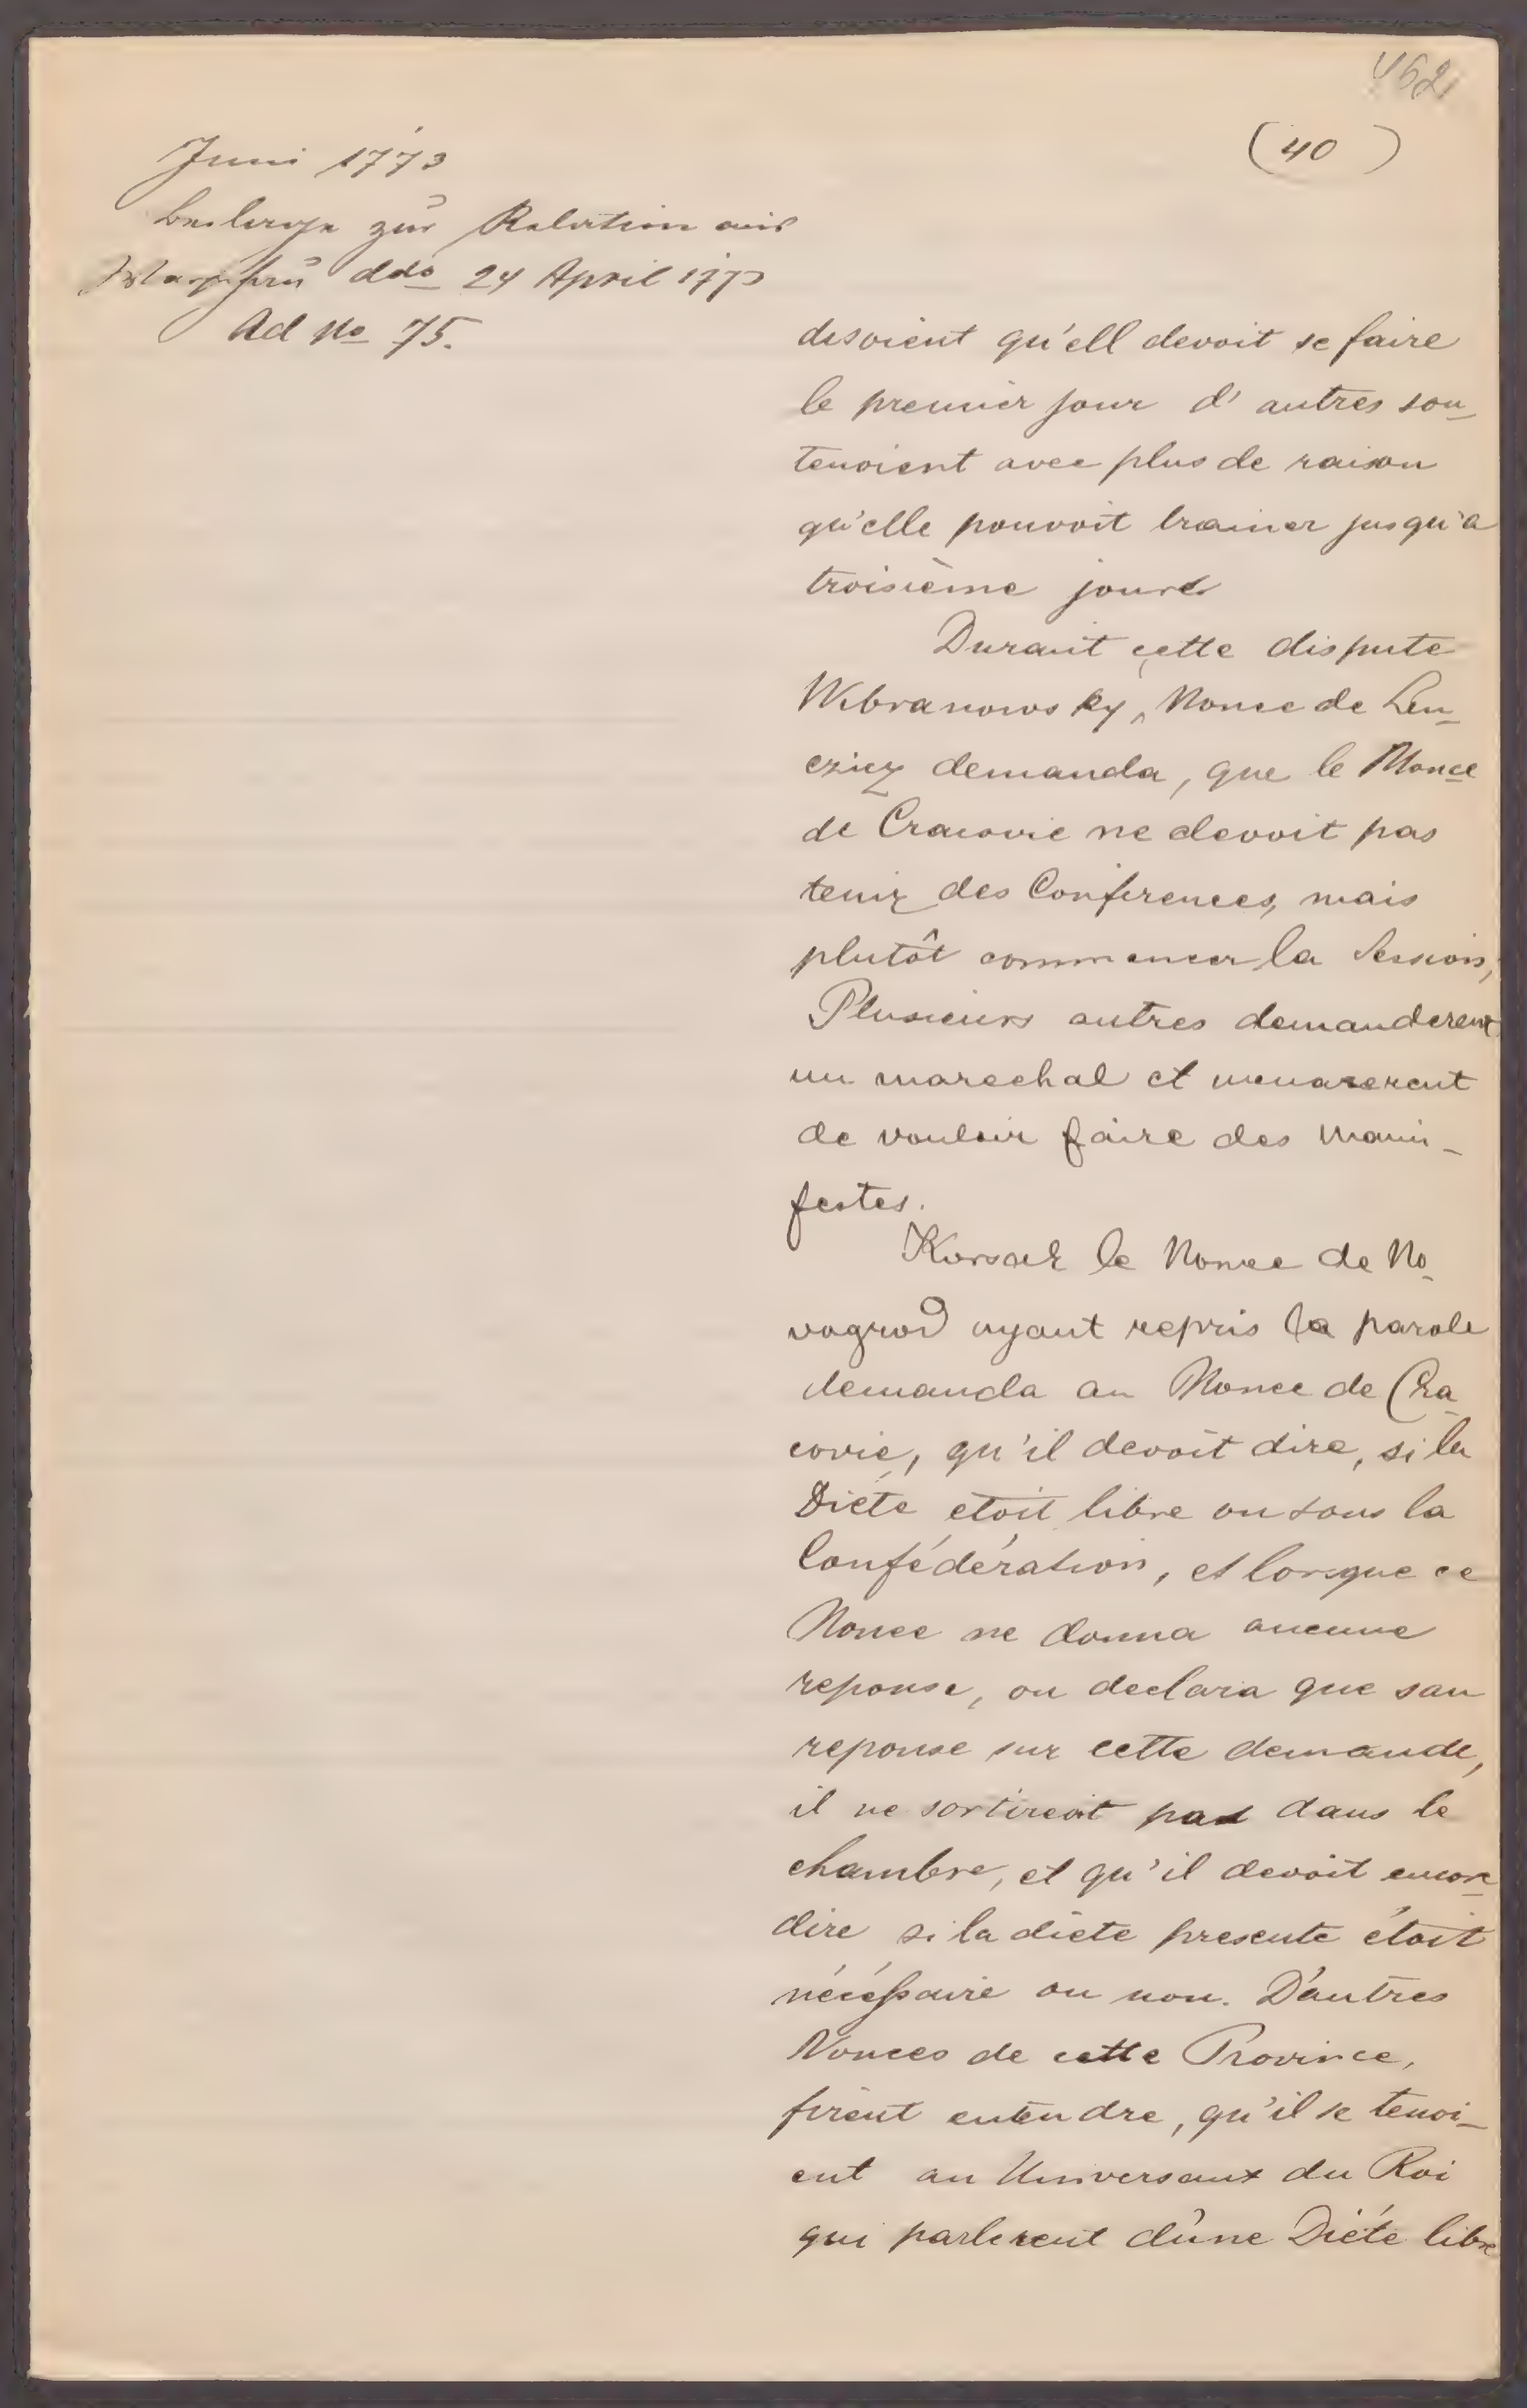 462
(40)
Juni 1773
Beilage zur Relation aus
Warschau ddo 24 April 1773
Ad No 75.
disoient qu'ell devoit se faire
le premier jour d'autres sou_
tenoient avec plus de raison
qu'elle pouvoit trainer jusqu'a
troisième jour
Durant cette dispute
Wibranowsky, Nonce de Len_
czicz demanda, que le Nonce
de Cracovie ne devoit pas
tenir des Conferences, mais
plutôt commencer la Session,
Plusieurs autres demanderent
un marechal et menacerent
de vouloir faire des Mani_
festes.
Korsak le Nonce de No_
vogrod ayant repris la parole
demanda au Nonce de Cra_
covie, qu'il devoit dire, si la
Diéte etoit libre ou sous la
Confédération, et lorsque ce
Nonce ne donna aucune
reponse, on declara que san
reponse sur cette demande,
il ne sortireoit pas dans le
chambre, et qu'il devoit encore
dire si la diete presente étoit
nécéssaire ou non. D'autres
Nonces de cette Province,
firent entendre, qu'il se tenoi_
ent au Universaux du Roi
qui parlerent d'une Diéte libre